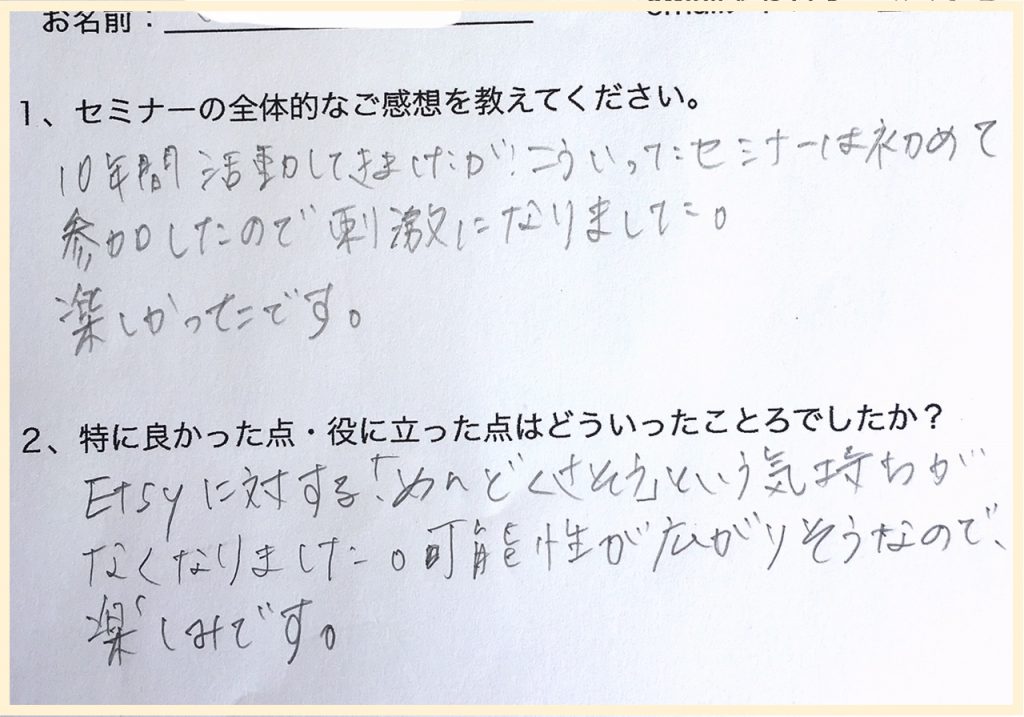 お名前：
1、セミナーの全体的なご感想を教えてください。
10年間活動してきましたが、こういったセミナーは初めて
参加したので刺激になりました。
楽しかったです。
2、特に良かった点・役に立った点はどういったことろでしたか？
Etsyに対する「めんどくさそう」という気持ちが
なくなりました。可能性が広がりそうなので、
楽しみです。